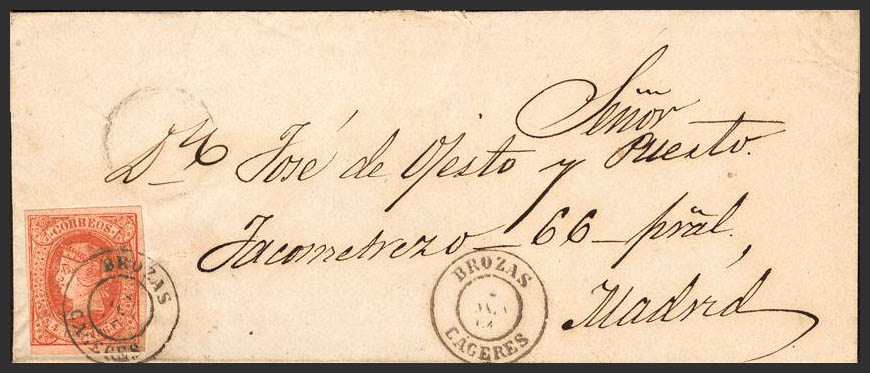 Señor
Dn José de Ojesto y Puesto.
Jacometrezo - 66 - pral.
Madrid
CORREOS
BROZAS
CACERES
BROZAS
CACERES